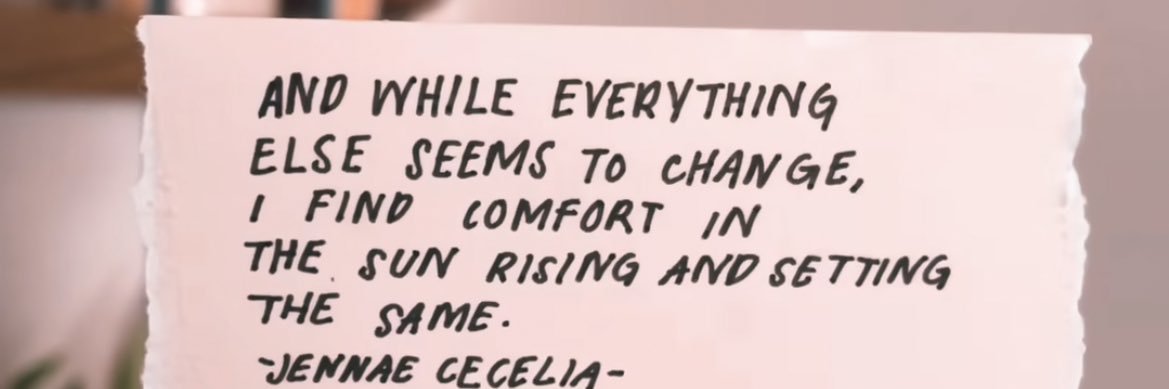 AND WHILE EVERYTHING
ELSE SEEMS TO CHANGE,
I FIND COMFORT IN
THE SUN RISING AND SETTING
THE SAME.
-JENNAE CECELIA-